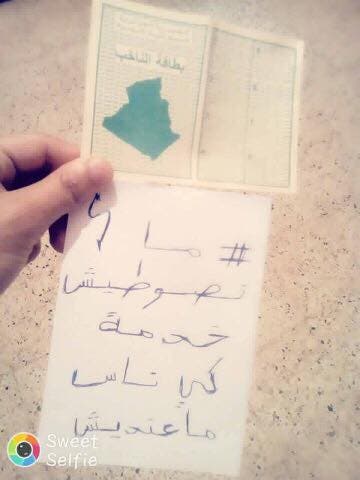 بطاقة الناخب
# ما
نصوطيش
خدمة
كي ناس
ماعنديش
Sweet
Selfie